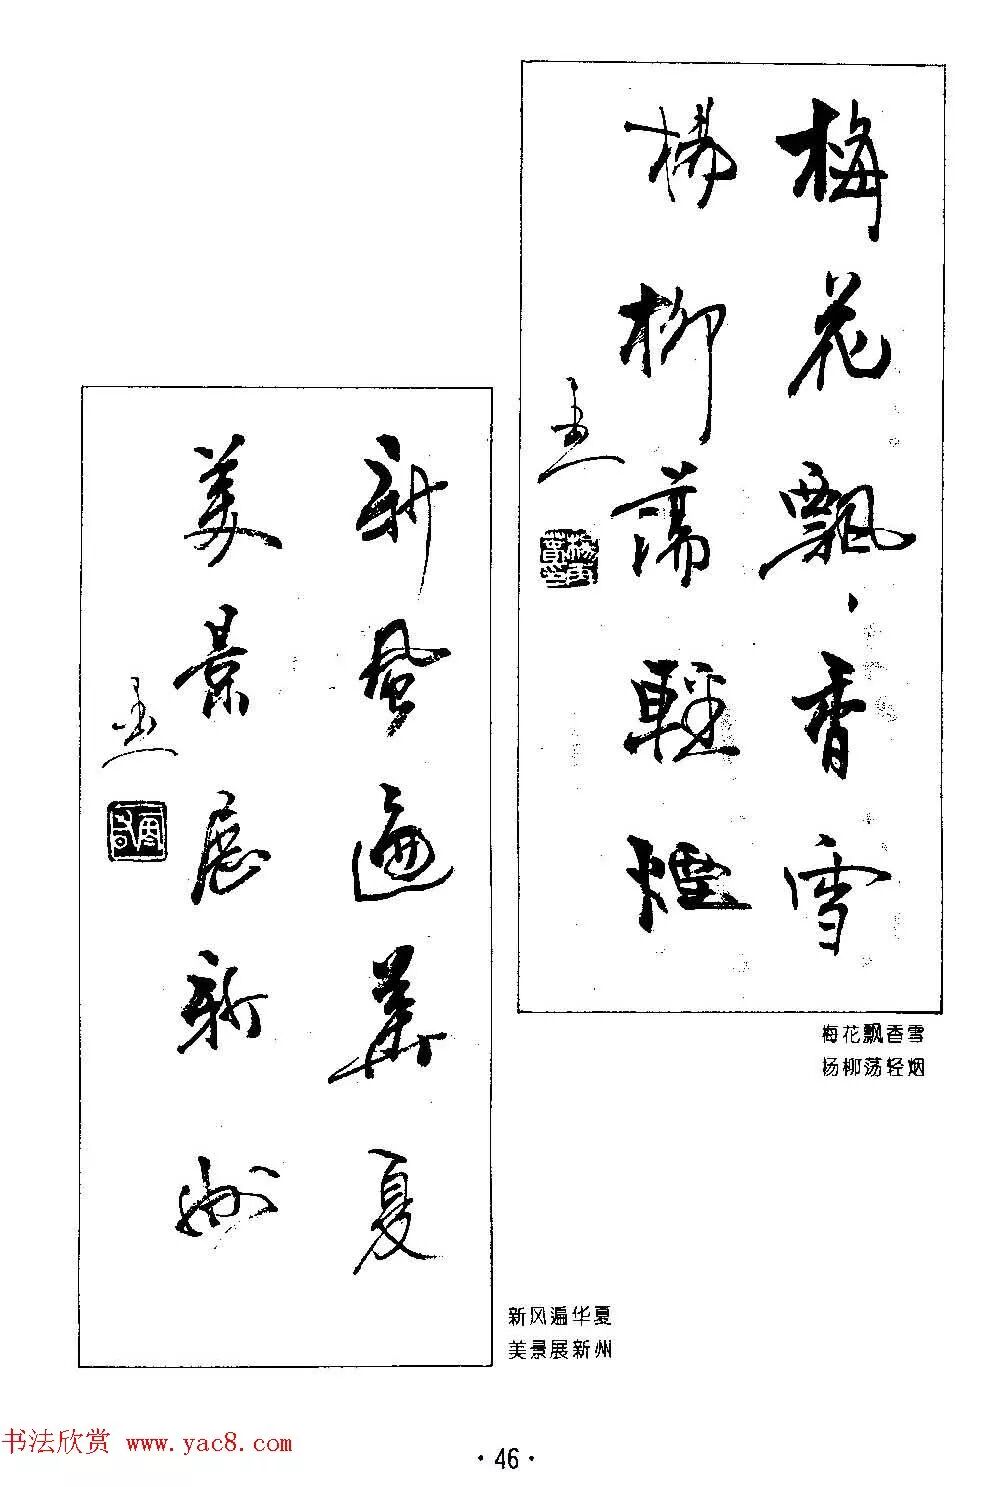 梅花飄香雪
楊柳蕩輕煙
梅花飘香雪
杨柳荡轻烟
新風遍華夏
美景展新州
新风遍华夏
美景展新州
书法欣赏 www.yac8.com
·46·